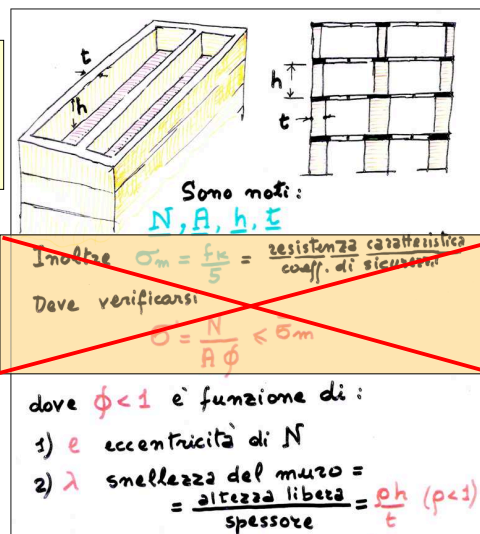 t
h
h
t
Sono noti:
N, A, h, t
Inoltre σm = fk/5 = resistenza caratteristica / coeff. di sicurezza
Deve verificarsi
σ = N / A ϕ < σm
dove ϕ < 1 è funzione di:
1) e eccentricità di N
2) λ snellezza del muro =
= altezza libera / spessore = ρh / t (ρ<1)